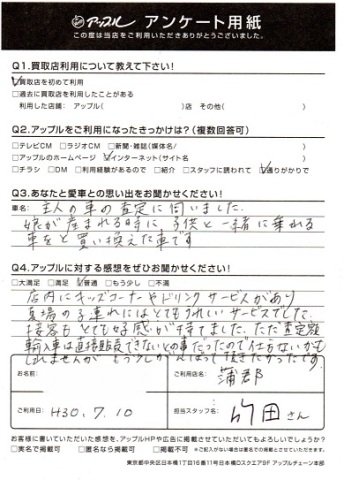 アップル アンケート用紙
この度は当店をご利用いただきありがとうございました。
Q1.買取店利用について教えて下さい!
☑買取店を初めて利用
□過去に買取店を利用したことがある
利用した店舗: アップル( )店 その他( )
Q2.アップルをご利用になったきっかけは?(複数回答可)
□テレビCM □ラジオCM □新聞・雑誌(媒体名/ )
□アップルのホームページ ☑インターネット(サイト名 )
□チラシ □DM □利用経験があるので □紹介 □スタッフに誘われて ☑通りがかりで
Q3.あなたと愛車との思い出をお聞かせください!
車名: 主人の車の査定に伺いました。
娘が産まれる時に、子供と一緒に乗れる
車をと買い換えた車です
Q4.アップルに対する感想をぜひお聞かせください!
□大満足 □満足 ☑普通 □もう少し □不満
店内にキッズコーナーやドリンクサービスがあり
夏場の子連れにはとてもうれしいサービスでした。
接客もとても好感が持てました。ただ査定額
輸入車は直接販売できないとの事だったので仕方ないかも
しれませんが もう少しがんばって頂きたかったです。
お名前:
ご利用店名: 蒲郡
ご利用日: H30.7.10
担当スタッフ名: 竹田さん
お客様に書いていただいた感想を、アップルHPや広告に掲載させていただいてもよろしいでしょうか?
□実名で掲載可 □匿名なら掲載可 □掲載不可 ※ご記入がない場合は匿名での掲載とさせていただきます。
東京都中央区日本橋1丁目16番11号日本橋DスクエアSF アップルチェーン本部